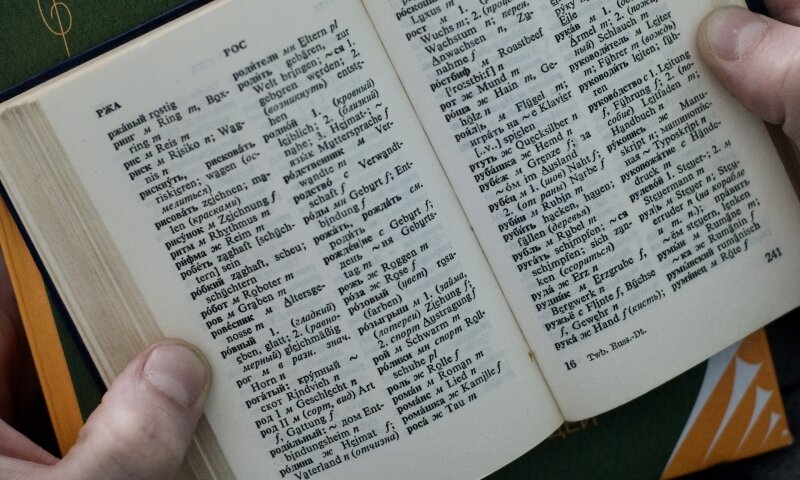 РЖА
РОС
ржа́вый rostig
ринг м Ring m, Box-
ring m
рис м Reis m
риск м Risiko n; Wag-
nis n
рискну́ть, рискова́ть
riskieren; wagen (ос-
мелиться)
рисова́ть zeichnen; ma-
len (красками)
рису́нок м Zeichnung f
ритм м Rhythmus m
ри́фма ж Reim m
робе́ть zaghaft [schüch-
tern] sein
ро́бкий zaghaft, scheu;
schüchtern
ро́бот м Roboter m
ров м Graben m
рове́сник м Altersge-
nosse m
ро́вный 1. (гладкий)
eben, glatt; 2. (равно-
мерный) gleichmäßig
рог м в разн. знач.
Horn n
рога́тый: кру́пный ~
скот Rindvieh n
род I м Geschlecht n
род II м (сорт, вид) Art
f, Gattung f
роди́льный: ~ дом Ent-
bindungsheim n
ро́дина ж Heimat f;
Vaterland n (отчизна)
роди́тели мн Eltern pl
роди́ть gebären, zur
Welt bringen; ~ся 1.
geboren werden; 2.
(возникнуть) entste-
hen
родно́й 1. (кровный)
leiblich; 2. (близкий)
nahe; 3. Heimat-; ~
язык Muttersprache f
ро́дственник м Ver-
wandte m
родство́ с Verwandt-
schaft f
ро́ды мн Geburt f; Ent-
bindung f
рожа́ть, рожда́ть см.
роди́ть
рожде́ние с Geburt f;
день ~ия Geburts-
tag m
рожь ж Roggen m
ро́за ж Rose f
ро́зовый (цвет) rosa
(farben)
ро́зыгрыш м 1. (займа,
лотереи) Ziehung f;
2. спорт Austragung f
рой м Schwarm m
ро́лики мн спорт Roll-
schuhe pl
роль ж Rolle f
рома́н м Roman m
рома́нс м Lied n
рома́шка ж Kamille f
роса́ ж Tau m
Luxus m; 2. (
рост м 1. (процесс)
Wuchs m; 2. перен.
Wachstum n; Zu-
nahme f
ро́стбиф м Roastbeef
['ro:stbi:f] n
рот ж Mund m
ро́ща ж Hain m, Ge-
hölz n
роя́ль м Flügel m;
игра́ть на ~е Klavier
[...v..] spielen
ртуть ж Quecksilber n
руба́шка ж Hemd n
рубе́ж м Grenze f; за
~о́м im Ausland
рубе́ц м 1. (шов) Naht f;
2. (от раны) Narbe f
руби́н м Rubin m
руби́ть hacken, hauen;
fällen (деревья)
рубль м Rubel m
руга́ть schimpfen; ~ся
schimpfen; sich zan-
ken (ссориться)
руда́ ж Erz n
рудни́к м Erzgrube f,
Bergwerk n
ружьё с Flinte f, Büchse
f, Gewehr n
рука́ ж Hand f (кисть);
рука́в м 1. (одежды)
Ärmel m; 2. (пожар-
ный) Schlauch m
руководи́тель м Leiter
m; Führer m (вождь)
руководи́ть leiten; füh-
ren
руково́дство с 1. Leitung
f, Führung f; 2. (по-
собие) Leitfaden m;
Handbuch n
ру́копись ж Manu-
skript n; машинопис-
ная ~ Typoskript n
рукопожа́тие с Hände-
druck m
рулево́й 1. Steuer-; 2. м
Steuermann m
руль м Steuer n; Steu-
erruder n (на корабле
и т. п.); пра́вить
~ём steuern, lenken
румы́н м Rumäne m;
~ка ж Rumänin f
румы́нский rumänisch
румя́нец м Röte f
16 Twb. Russ.-Dt.
241